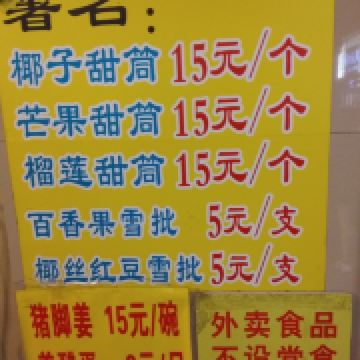 署名：
椰子甜筒 15元/个
芒果甜筒 15元/个
榴莲甜筒 15元/个
百香果雪批 5元/支
椰丝红豆雪批 5元/支
猪脚姜 15元/碗
外卖食品
不设堂食